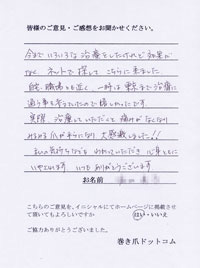 皆様のご意見・ご感想をお聞かせください。
今までいろいろな治療をしたけれど効果が
なく、ネットで探してこちらに来ました。
自宅、職場とも近く、一時は東京まで治療に
通う事を考えていたので嬉しかったです。
実際、治療していただくと痛みがなくなり
みるみる爪が平らになり、大感動しました!!
私の気持ちなども
いやされます。いつもありがとうございます
お名前
こちらのご意見を、イニシャルにてホームページに掲載させ
て頂いてもよろしいですか はい・いいえ
ご協力ありがとうございました。
巻き爪ドットコム